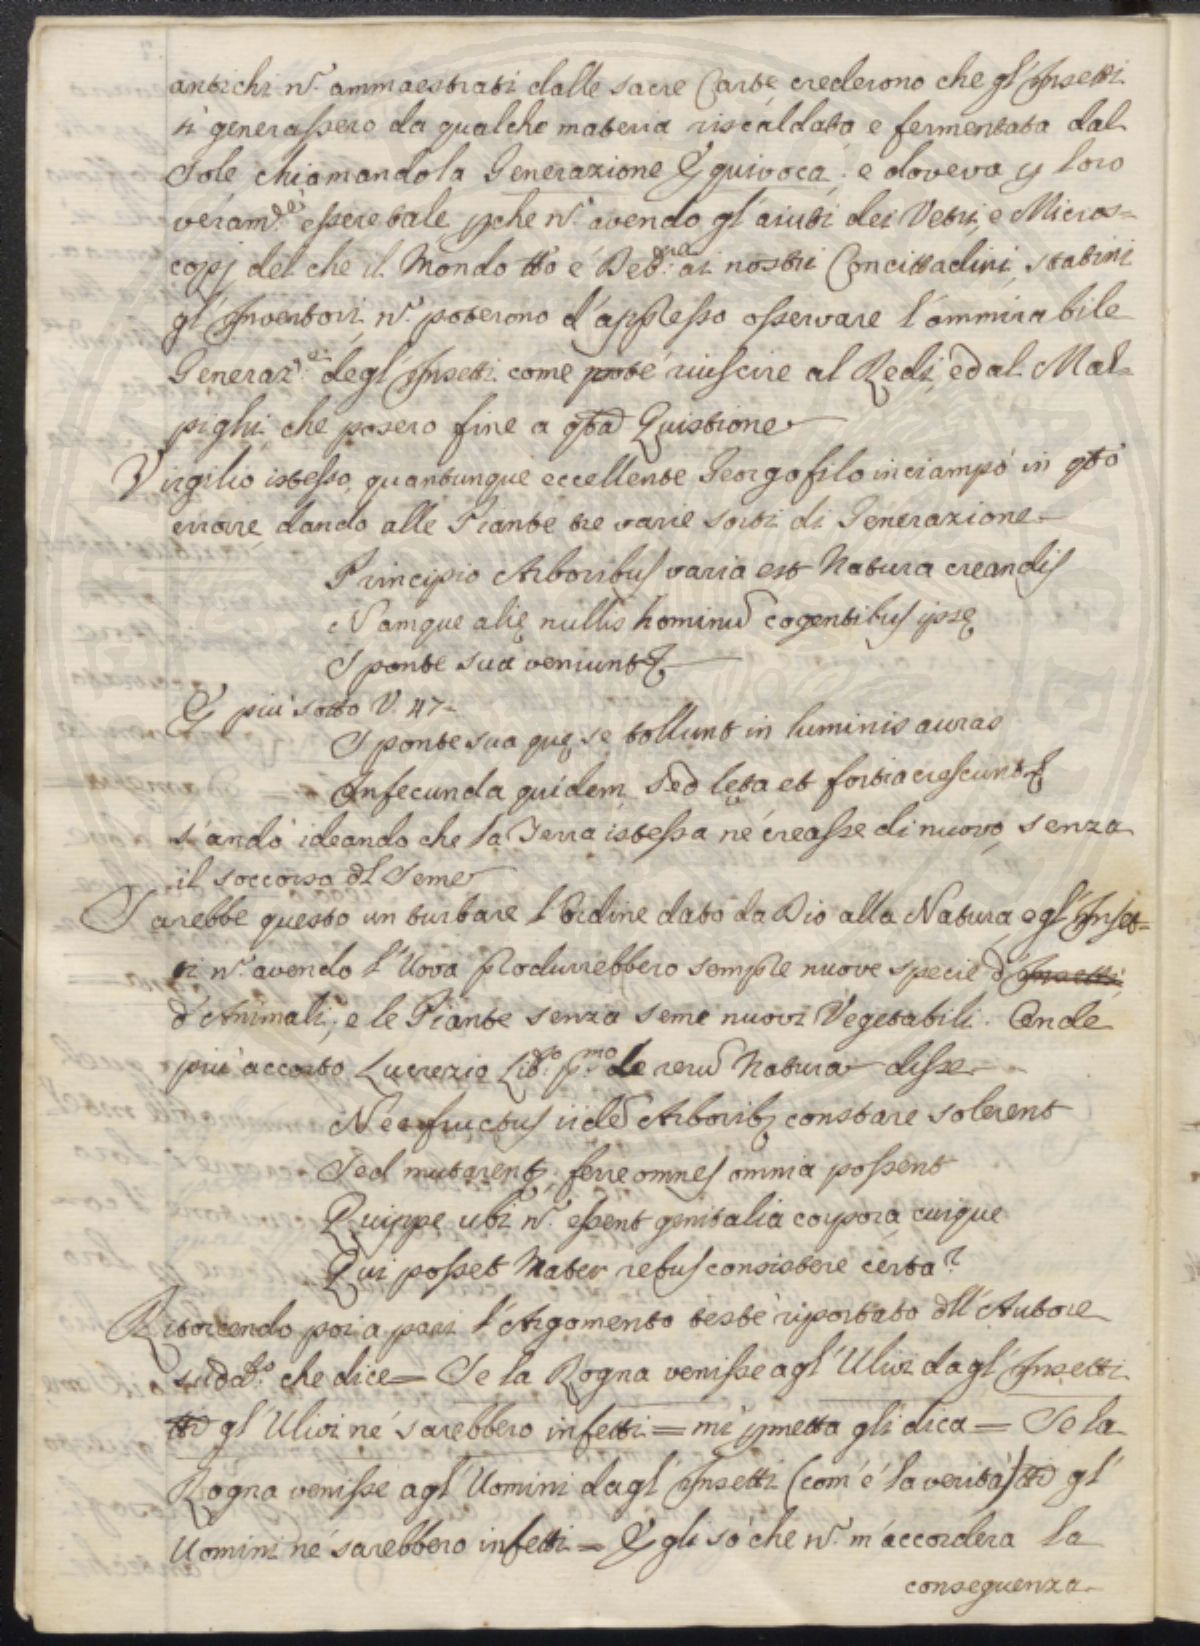 antichi n. ammaestrati dalle sacre Carte crederono che gl'Insetti
si generassero da qualche materia riscaldata e fermentata dal
Sole chiamandola Generazione Equivoca; e doveva p loro
veram.te essere tale, pche n. avendo gl'aiuti dei Vetri, e Micros=
copj del che il Mondo tto è Deb.re ai nostri Concittadini, statini
gl'Inventori, n. poterono d'appresso osservare l'ammirabile
Generaz.e degl'Insetti come potè riuscire al Redi, ed al Mal=
pighi, che posero fine a qta Quistione
Virgilio istesso, quantunque eccellente Georgofilo inciampò in qto
errore, dando alle Piante tre varie sorti di Generazione
Principio Arboribus varia est Natura creandis
Namque alię nullis hominū cogentibus ipsę
Sponte sua veniunt &
E più sotto V. 47-
Sponte sua quę se tollunt in luminis auras
Infecunda quidem, sed lęta et fortia crescunt &
s'andò ideando che la Terra istessa ne creasse di nuovo, senza
il soccorso dl Seme
Sarebbe questo un turbare l'Ordine dato da Dio alla Natura, e gl'Inset=
ti n. avendo l'Uova produrrebbero sempre nuove specie d'Insetti
d'Animali, e le Piante senza seme nuovi Vegetabili. Onde
più accorto Lucrezio Lib.o p.mo de rerū Natura disse
Nec fructus iidē Arborib; constare solerent
Sed mutarent; ferre omnes omnia possent
Quippe ubi n. essent genitalia corpora cuique
Qui posset Mater rebus consistere certa?
Ritorcendo poi a pari l'Argomento testè riportato dll'Autore
sudd.o che dice = Se la Rogna venisse agl'Ulivi dagl'Insetti
tti gl'Ulivi ne sarebbero infetti = mi pmetta gli dica = Se la
Rogna venisse agl'Uomini dagl'Insetti (com'è la verità) tti gl'
Uomini ne sarebbero infetti = Egli sò che n. m'accorderà la
conseguenza